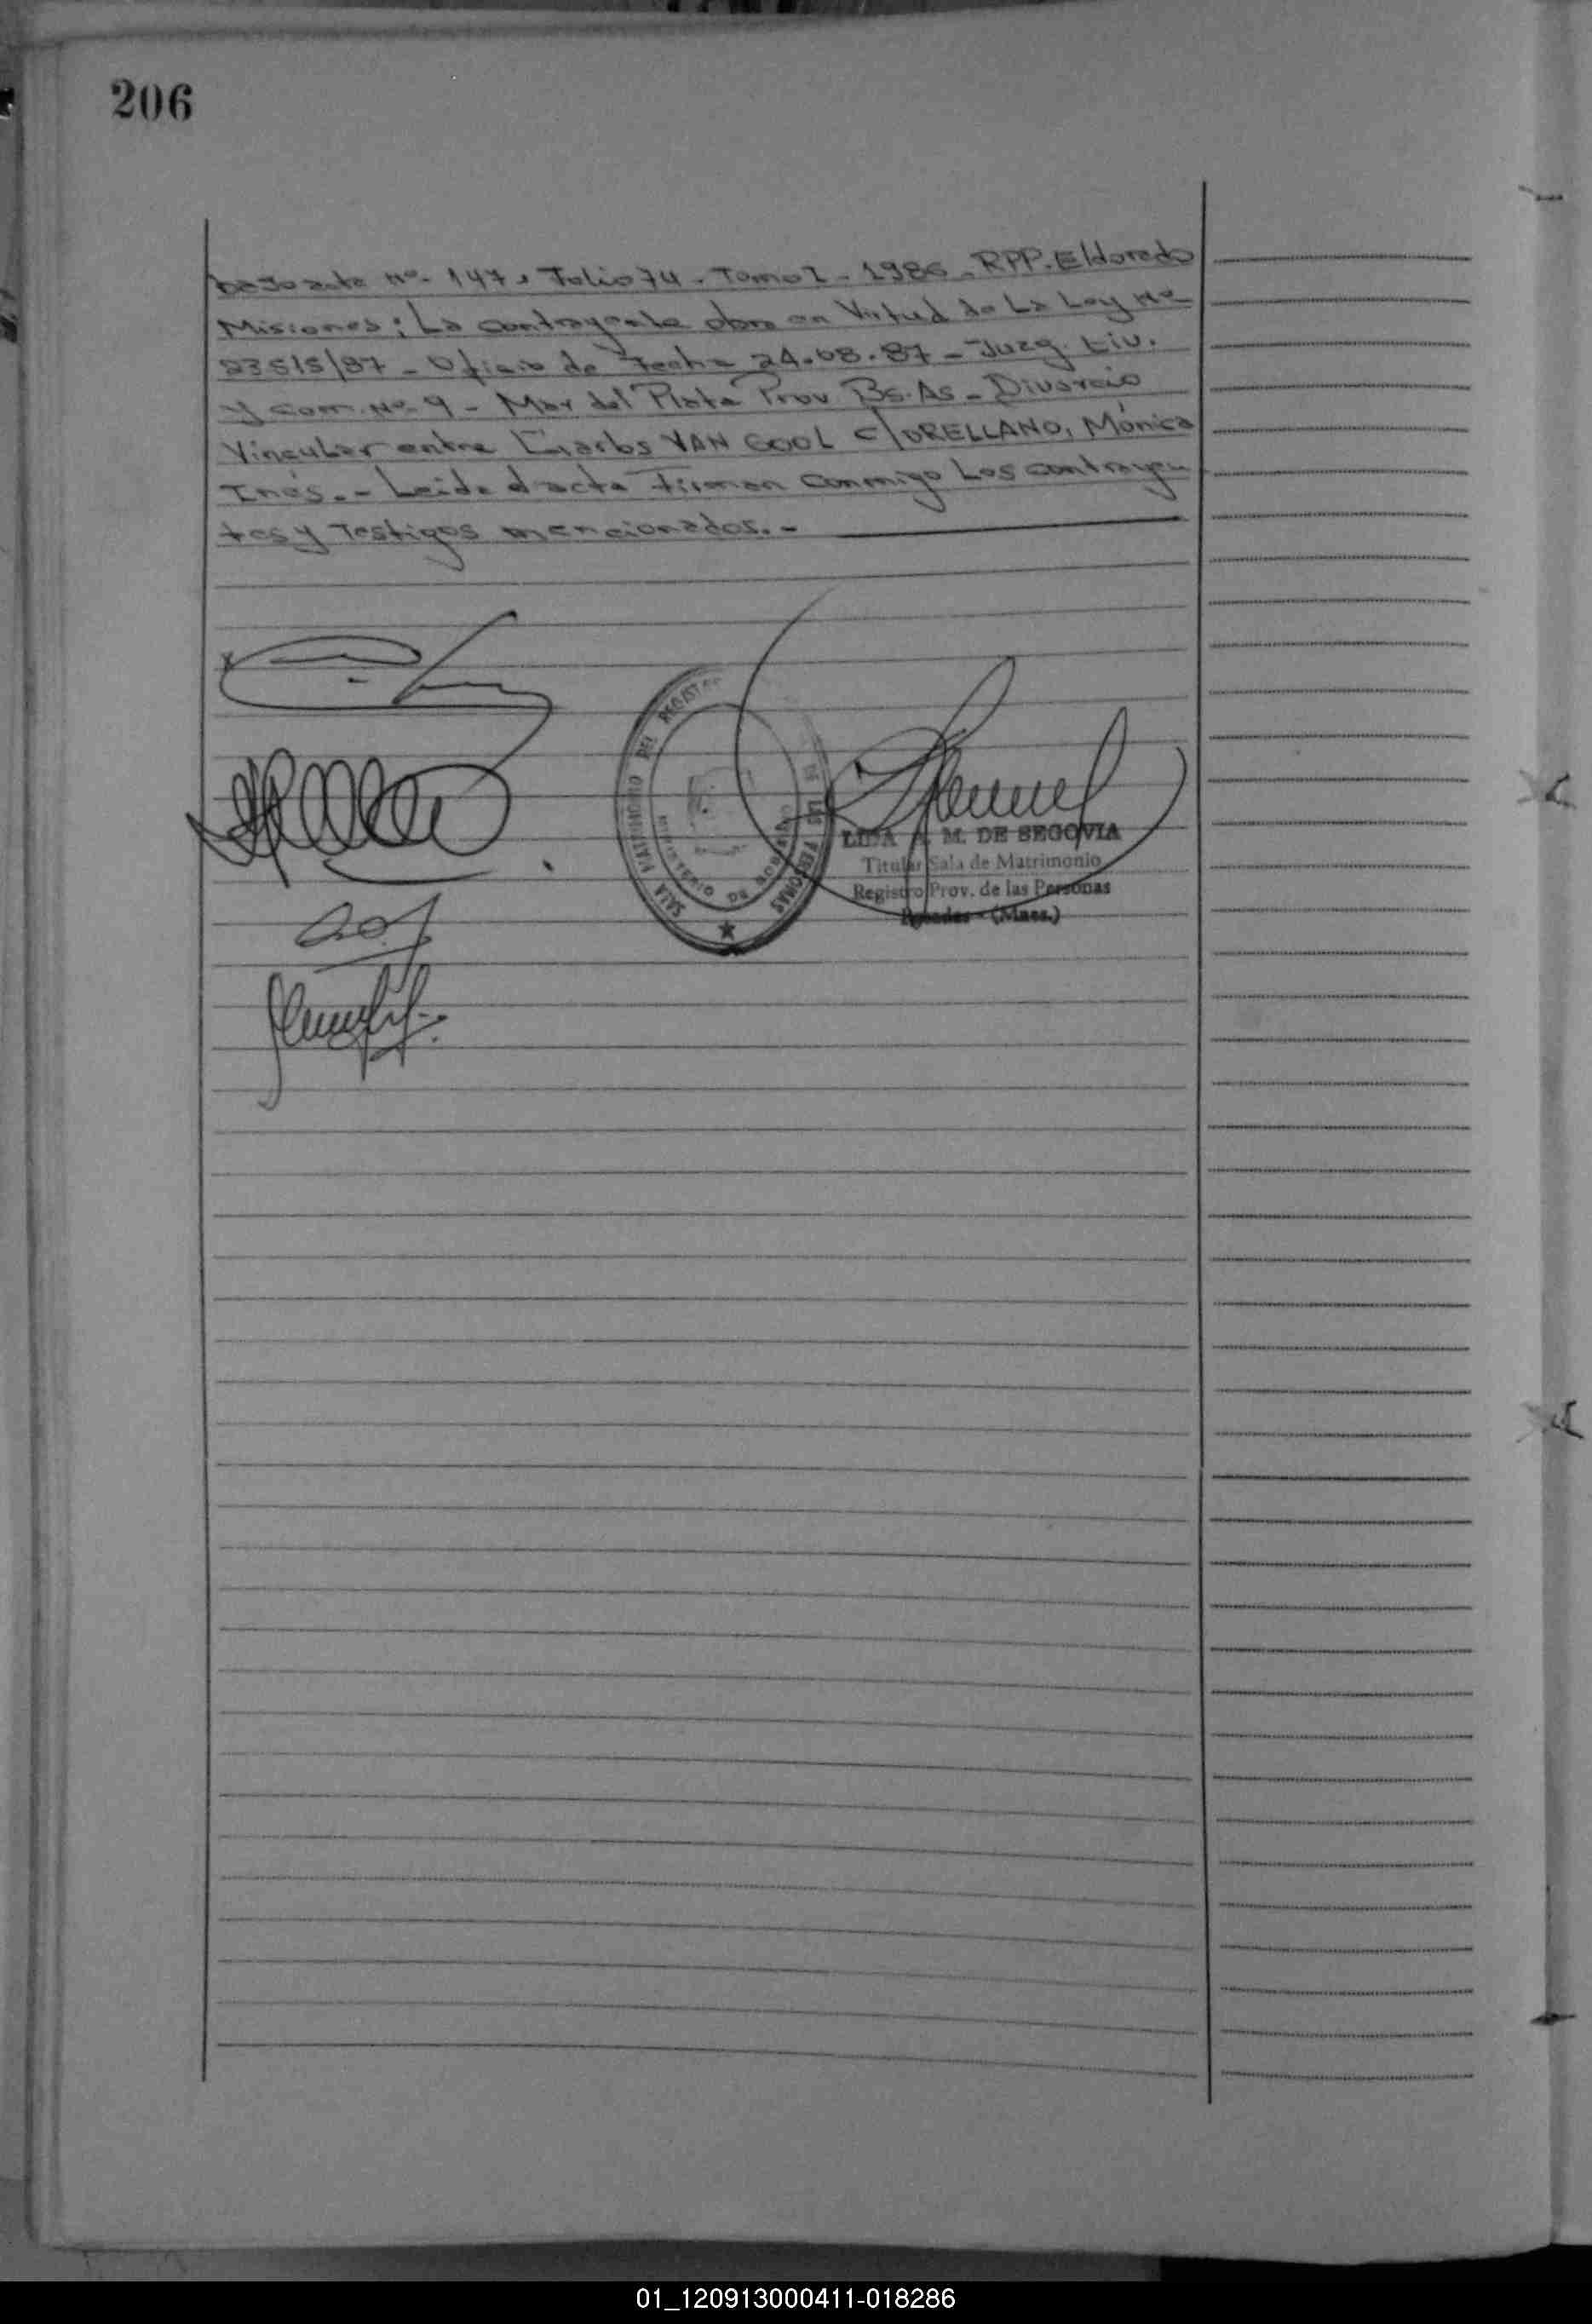 206
bajo acta nº 147, Folio 74 - Tomo I - 1986 - RPP. Eldorado
Misiones; La contrayente obra en Virtud de La Ley Nº
23515/87 - Oficio de Fecha 24.08.87 - Juzg. Civ.
y Com. Nº 9 - Mar del Plata Prov Bs. As - Divorcio
Vincular entre Carlos VAN GOOL c/ORELLANO, Mónica
Inés. - Leida el acta Firman conmigo Los contrayen
tes y Testigos mencionados. -
SALA MATRIMONIO DEL REGISTRO DE LAS PERSONAS
MINISTERIO DE GOBIERNO
M. DE SEGOVIA
Titular Sala de Matrimonio
Registro Prov. de las Personas
Posadas - (Mnes.)
01_120913000411-018286